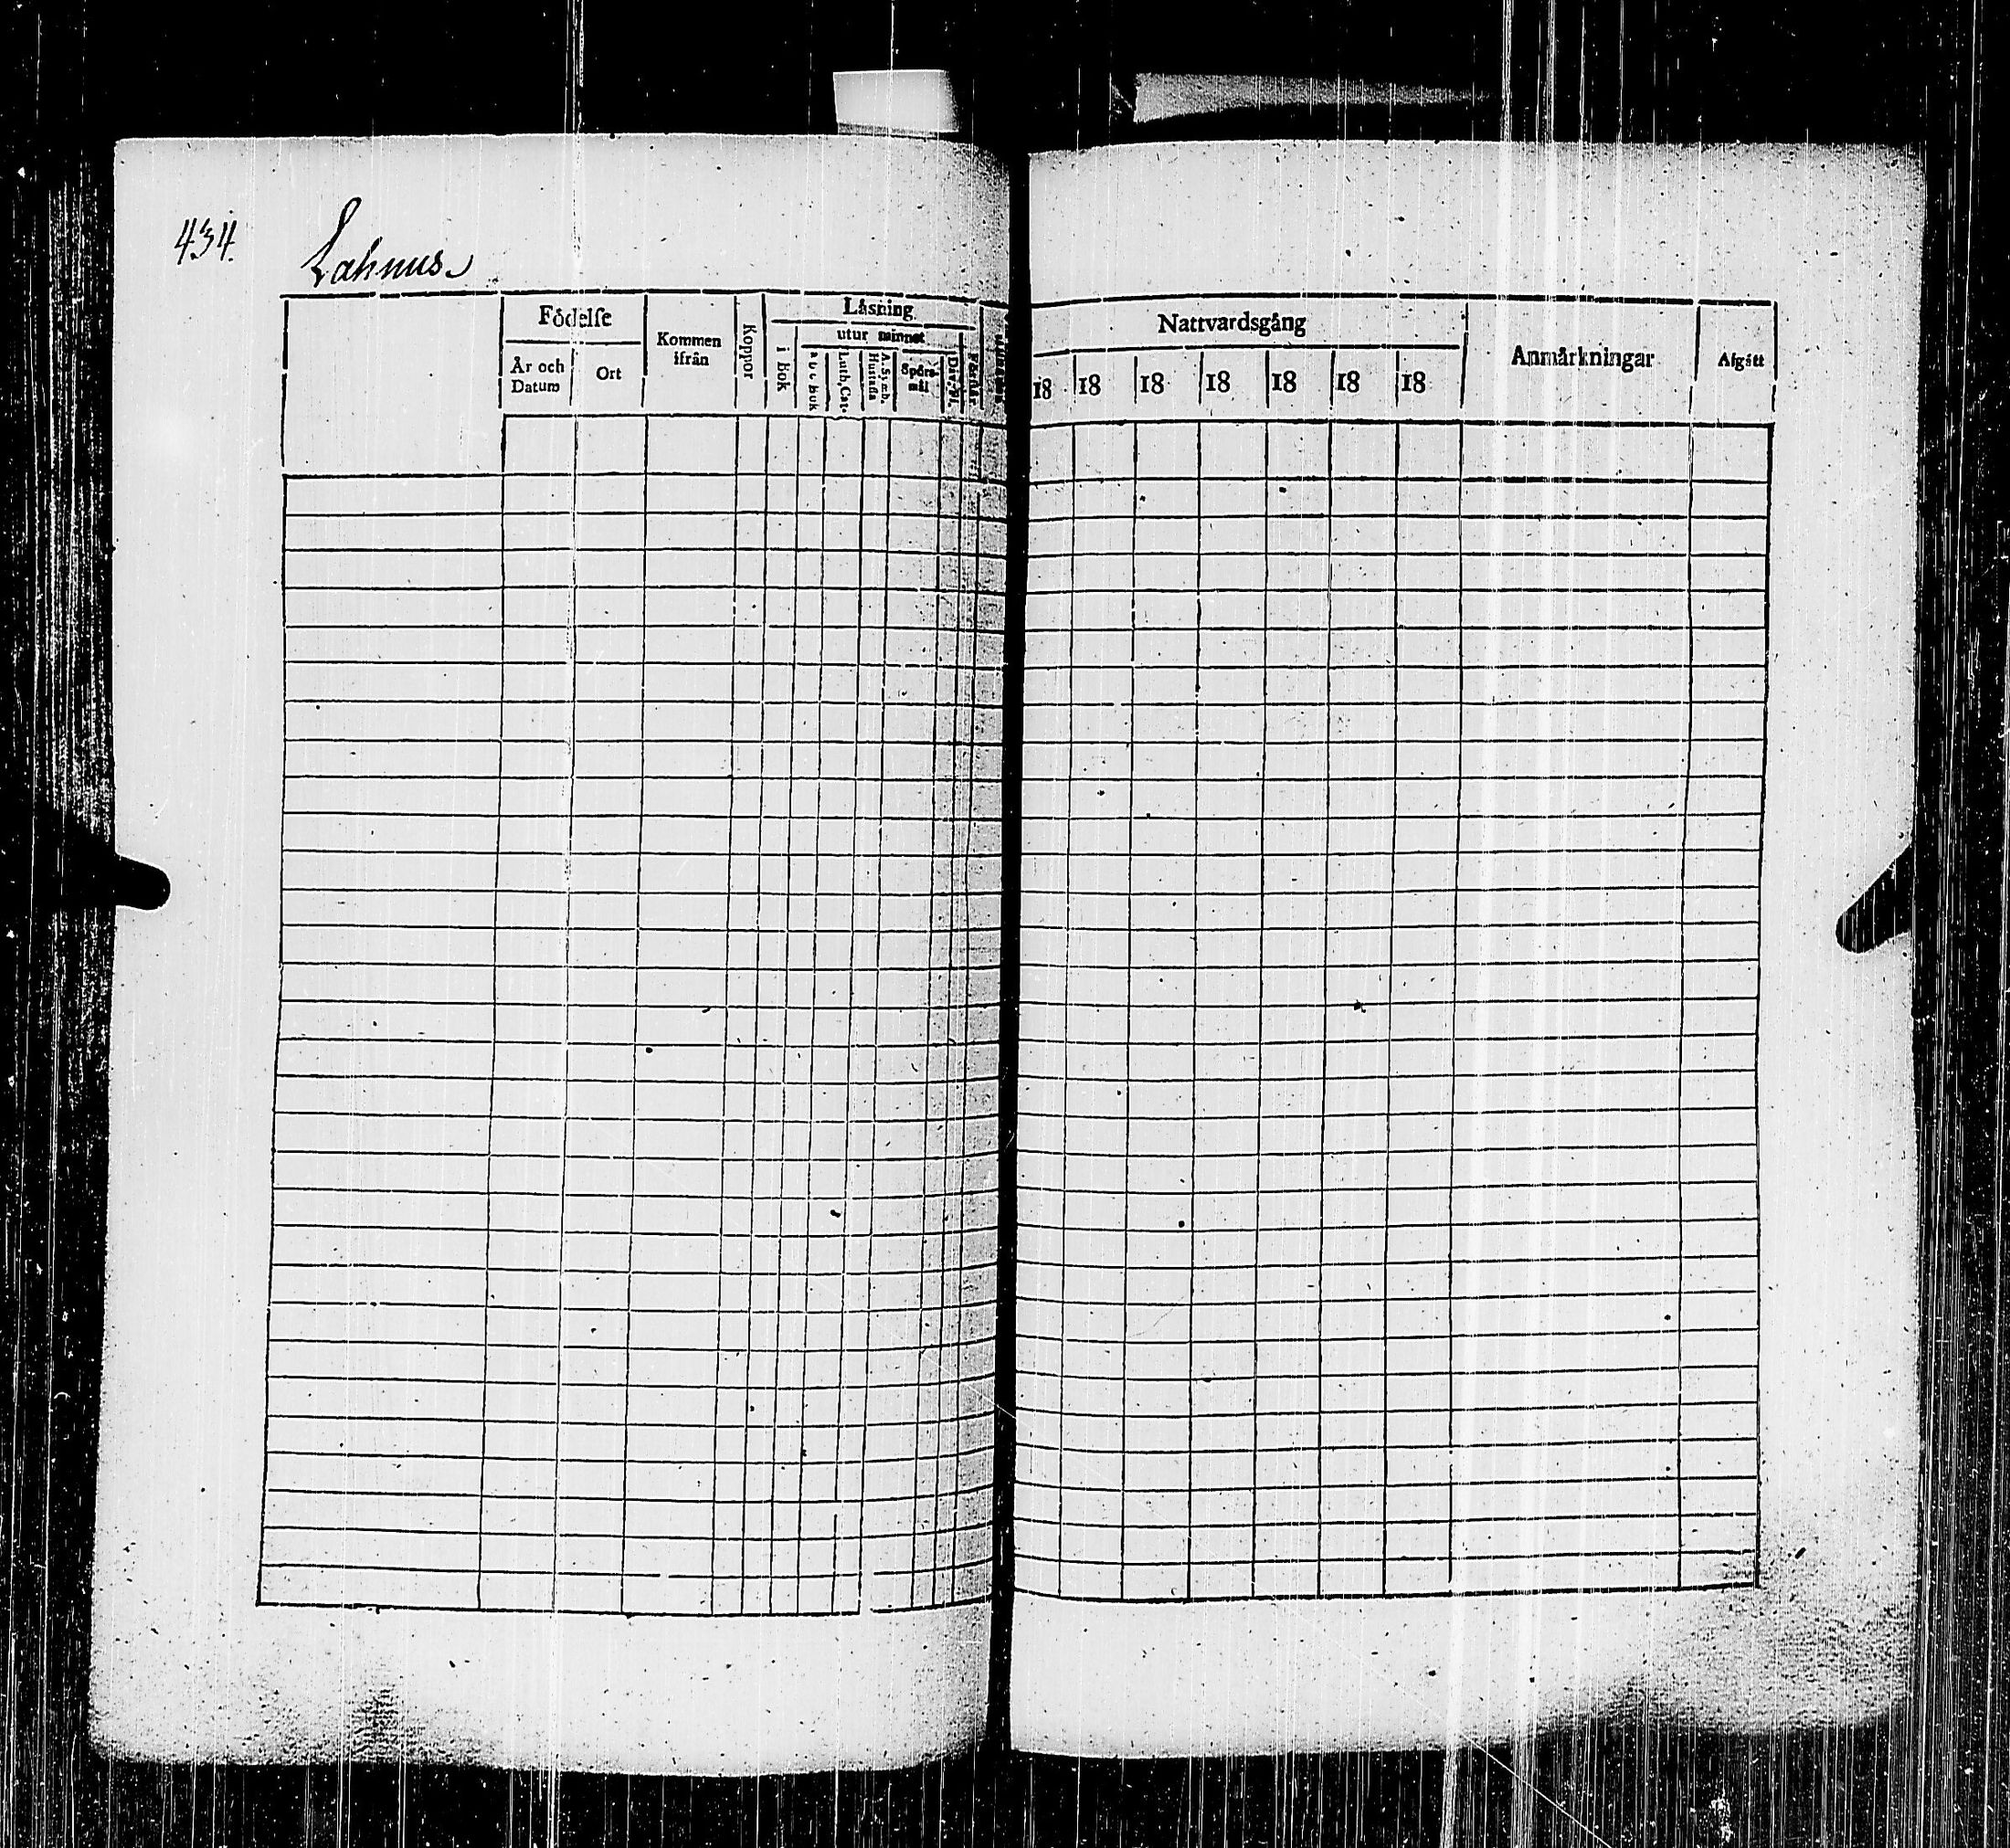 434.
Lahnus
Födelse
År och Datum
Ort
Kommen ifrån
Koppor
Läsning
i Bok
utur minnet
a b c bok
Luth. Cat.
A. Symb. Hustafla
Spörsmål
Nattvardsgång
18 18 18 18 18 18 18
Anmärkningar
Afgått